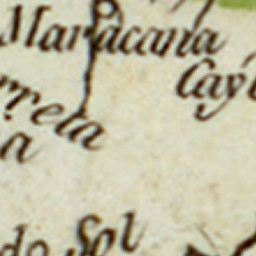 Maracana
Cay
rreta
a
do Sol